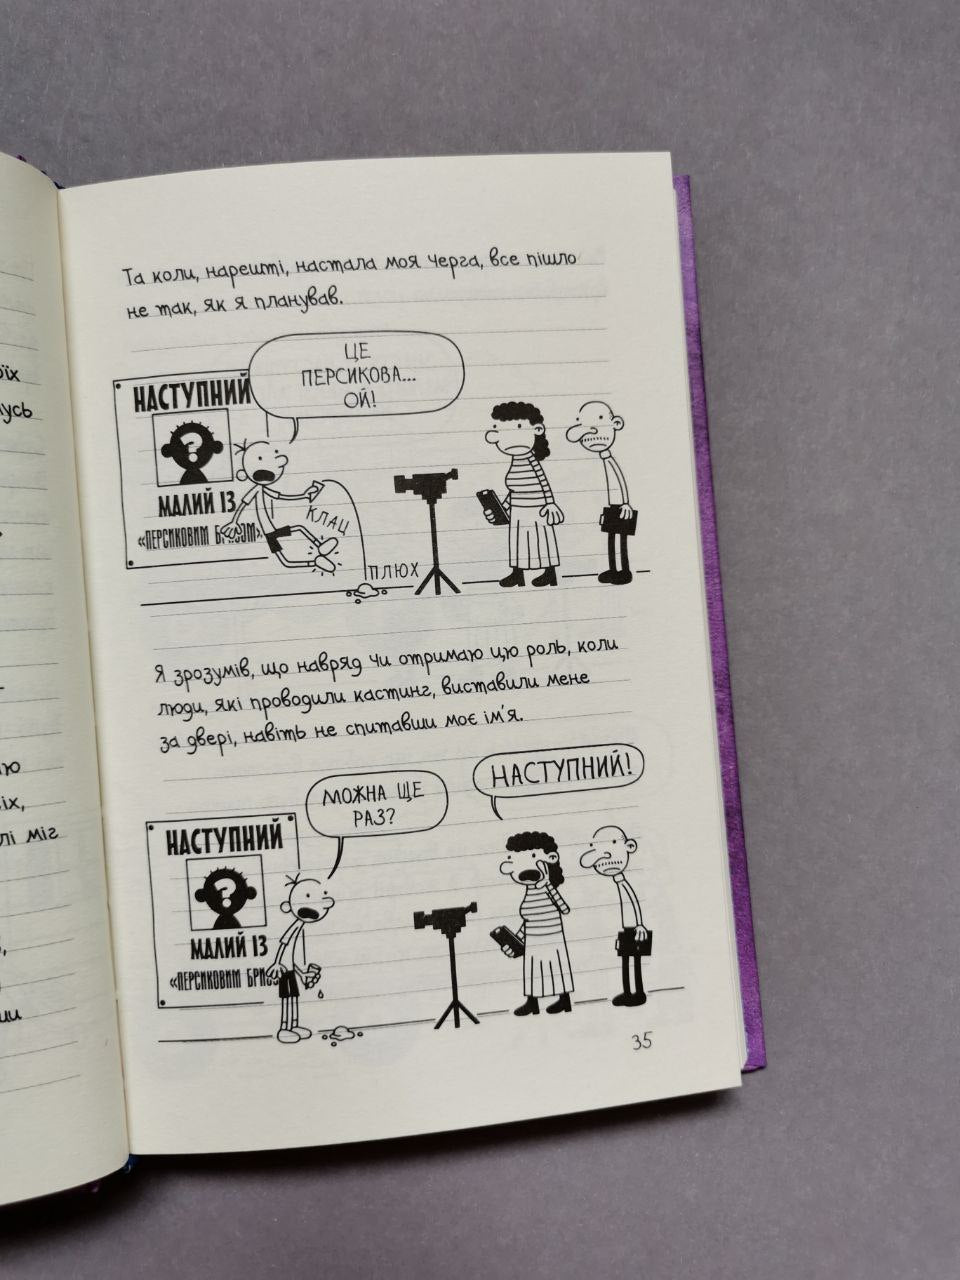 оїх
усь
ю
іх,
лі міг
,
ши
Та коли, нарешті, настала моя черга, все пішло
не так, як я планував.
ЦЕ
ПЕРСИКОВА...
ОЙ!
НАСТУПНИЙ
?
МАЛИЙ ІЗ
«ПЕРСИКОВИМ БРИЗОМ»
КЛАЦ
ПЛЮХ
Я зрозумів, що навряд чи отримаю цю роль, коли
люди, які проводили кастинг, виставили мене
за двері, навіть не спитавши моє ім'я.
МОЖНА ЩЕ
РАЗ?
НАСТУПНИЙ!
НАСТУПНИЙ
?
МАЛИЙ ІЗ
«ПЕРСИКОВИМ
35